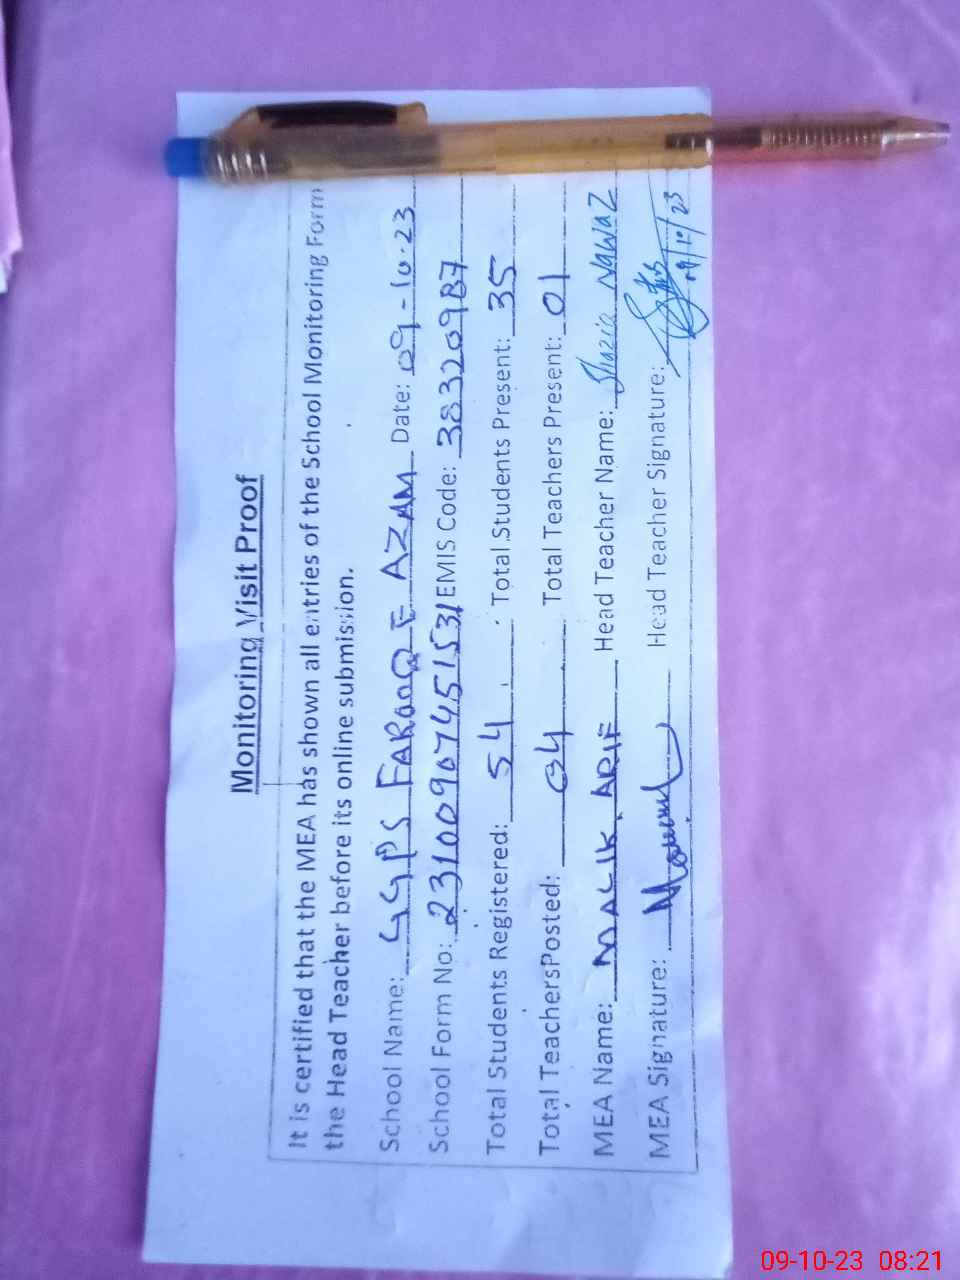 Monitoring Visit Proof
It is certified that the MEA has shown all entries of the School Monitoring Form
the Head Teacher before its online submission.
School Name: GGPS FAROOQ E AZAM Date: 09-10-23
School Form No: 23100907451531 EMIS Code: 38320987
Total Students Registered: 54 Total Students Present: 35
Total TeachersPosted: 04 Total Teachers Present: 01
MEA Name: MALIK ARIF Head Teacher Name: Shazia Nawaz
MEA Signature: Head Teacher Signature:
09/10/23
09-10-23 08:21